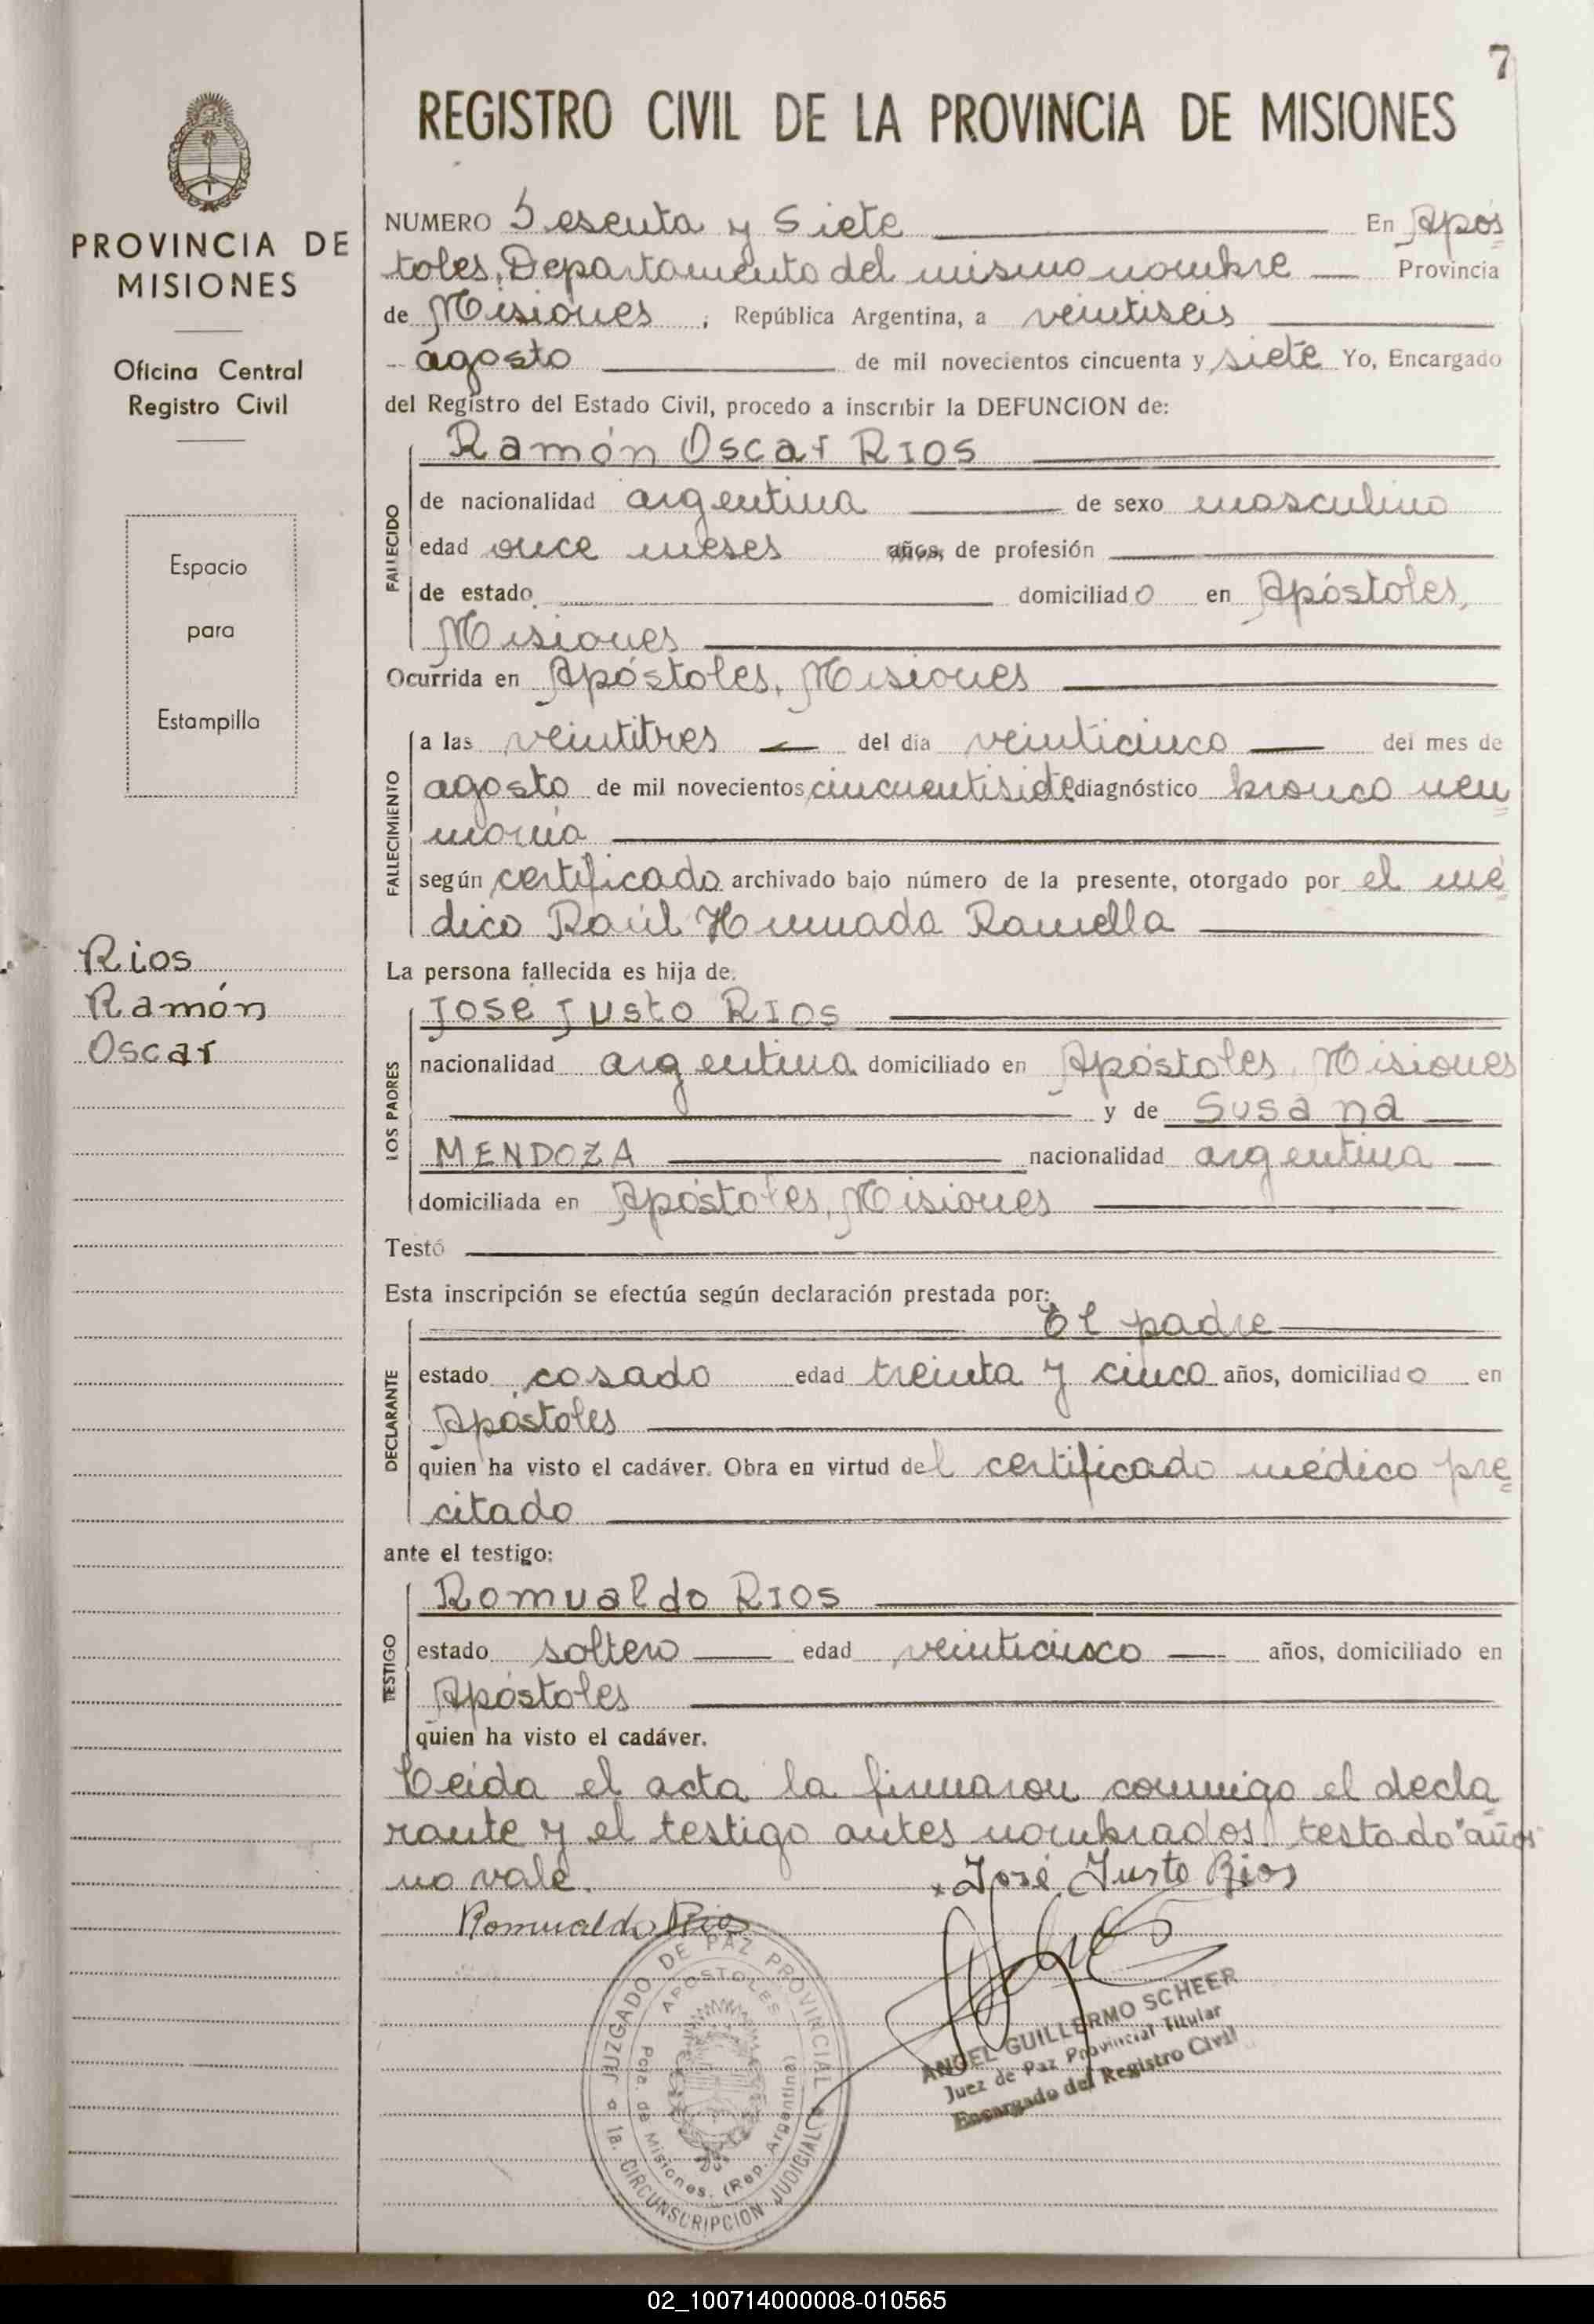 7
REGISTRO CIVIL DE LA PROVINCIA DE MISIONES
PROVINCIA DE
MISIONES
Oficina Central
Registro Civil
Espacio
para
Estampilla
Rios
Ramón
Oscar
NUMERO Sesenta y Siete En Após
toles, Departamento del mismo nombre Provincia
de Misiones, República Argentina, a veintiseis
agosto de mil novecientos cincuenta y siete Yo, Encargado
del Registro del Estado Civil, procedo a inscribir la DEFUNCION de:
Ramón Oscar RIOS
FALLECIDO
de nacionalidad argentina de sexo masculino
edad once meses años, de profesión
de estado domiciliado en Apóstoles,
Misiones
Ocurrida en Apóstoles, Misiones
FALLECIMIENTO
a las veintitres del dia veinticinco del mes de
agosto de mil novecientos cincuentisiete diagnóstico bronco neu
monia
según certificado archivado bajo número de la presente, otorgado por el mé
dico Raúl Humada Ramella
La persona fallecida es hija de:
LOS PADRES
José Justo RIOS
nacionalidad argentina domiciliado en Apóstoles, Misiones
y de Susana
MENDOZA nacionalidad argentina
domiciliada en Apóstoles, Misiones
Testó
Esta inscripción se efectúa según declaración prestada por:
El padre
DECLARANTE
estado casado edad treinta y cinco años, domiciliado en
Apóstoles
quien ha visto el cadáver. Obra en virtud del certificado médico pre
citado
ante el testigo:
TESTIGO
Romualdo RIOS
estado soltero edad veinticinco años, domiciliado en
Apóstoles
quien ha visto el cadáver.
Leida el acta la firmaron conmigo el decla
rante y el testigo antes nombrados. testado "años"
no vale.
x José Justo Rios
Romualdo Rios
JUZGADO DE PAZ PROVINCIAL
APOSTOLES
Pcia. de Misiones. (Rep. Argentina)
1a. CIRCUNSCRIPCION JUDICIAL
ANGEL GUILLERMO SCHEER
Juez de Paz Provincial Titular
Encargado del Registro Civil
02_100714000008-010565